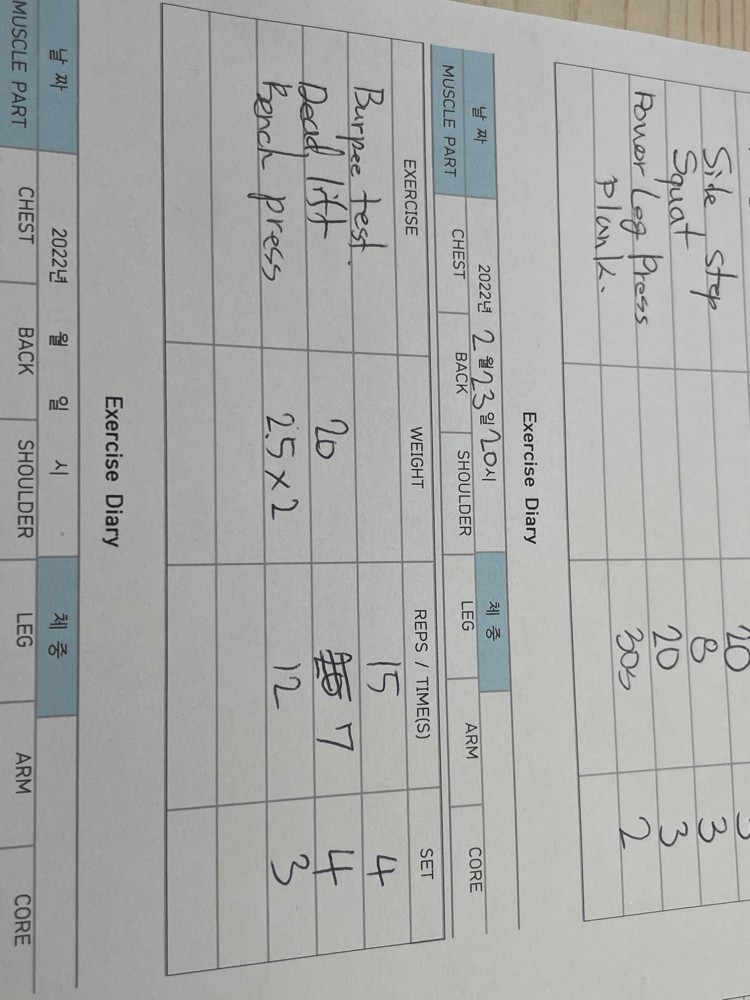 Side step 20
Squat 8 3
Power Leg Press 20 3
Plank. 30s 2
Exercise Diary
날 짜 2022년 2월 23일 20시 체 중
MUSCLE PART CHEST BACK SHOULDER LEG ARM CORE
EXERCISE WEIGHT REPS / TIME(S) SET
Burpee test. 15 4
Dead lift 20 7 4
Bench press 2.5 x 2 12 3
Exercise Diary
날 짜 2022년 월 일 시 체 중
MUSCLE PART CHEST BACK SHOULDER LEG ARM CORE